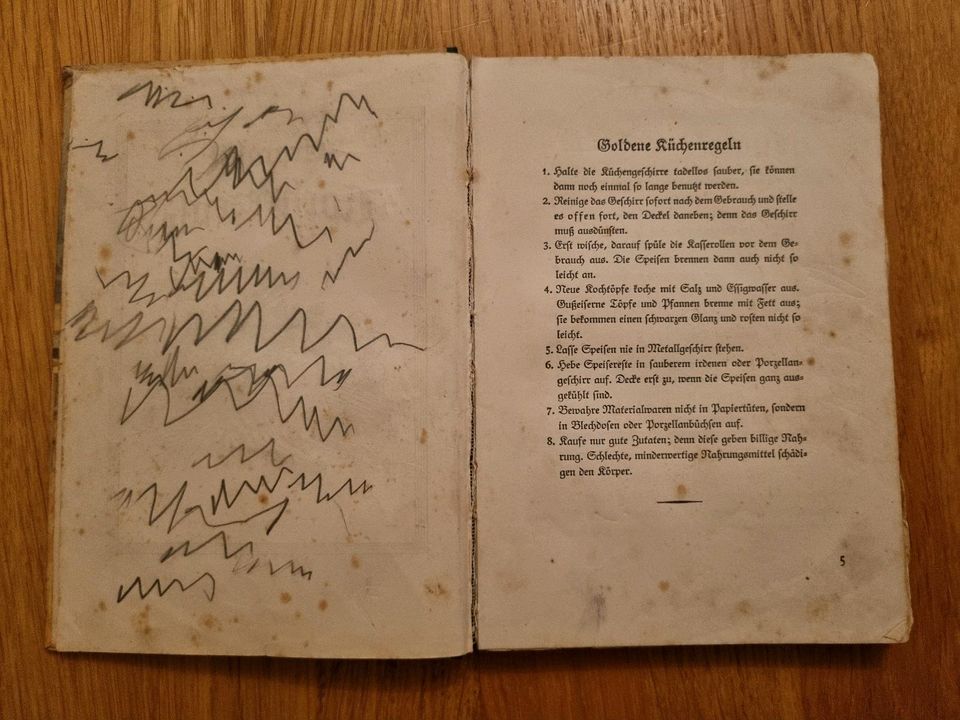 Goldene Küchenregeln
1. Halte die Küchengeschirre tadellos sauber, sie können
dann noch einmal so lange benutzt werden.
2. Reinige das Geschirr sofort nach dem Gebrauch und stelle
es offen fort, den Deckel daneben; denn das Geschirr
muß ausdünsten.
3. Erst wische, darauf spüle die Kasserollen vor dem Ge-
brauch aus. Die Speisen brennen dann auch nicht so
leicht an.
4. Neue Kochtöpfe koche mit Salz und Essigwasser aus.
Gußeiserne Töpfe und Pfannen brenne mit Fett aus;
sie bekommen einen schwarzen Glanz und rosten nicht so
leicht.
5. Lasse Speisen nie in Metallgeschirr stehen.
6. Hebe Speisereste in sauberem irdenen oder Porzellan-
geschirr auf. Decke erst zu, wenn die Speisen ganz aus-
gekühlt sind.
7. Bewahre Materialwaren nicht in Papiertüten, sondern
in Blechdosen oder Porzellanbüchsen auf.
8. Kaufe nur gute Zutaten; denn diese geben billige Nah-
rung. Schlechte, minderwertige Nahrungsmittel schädi-
gen den Körper.
5